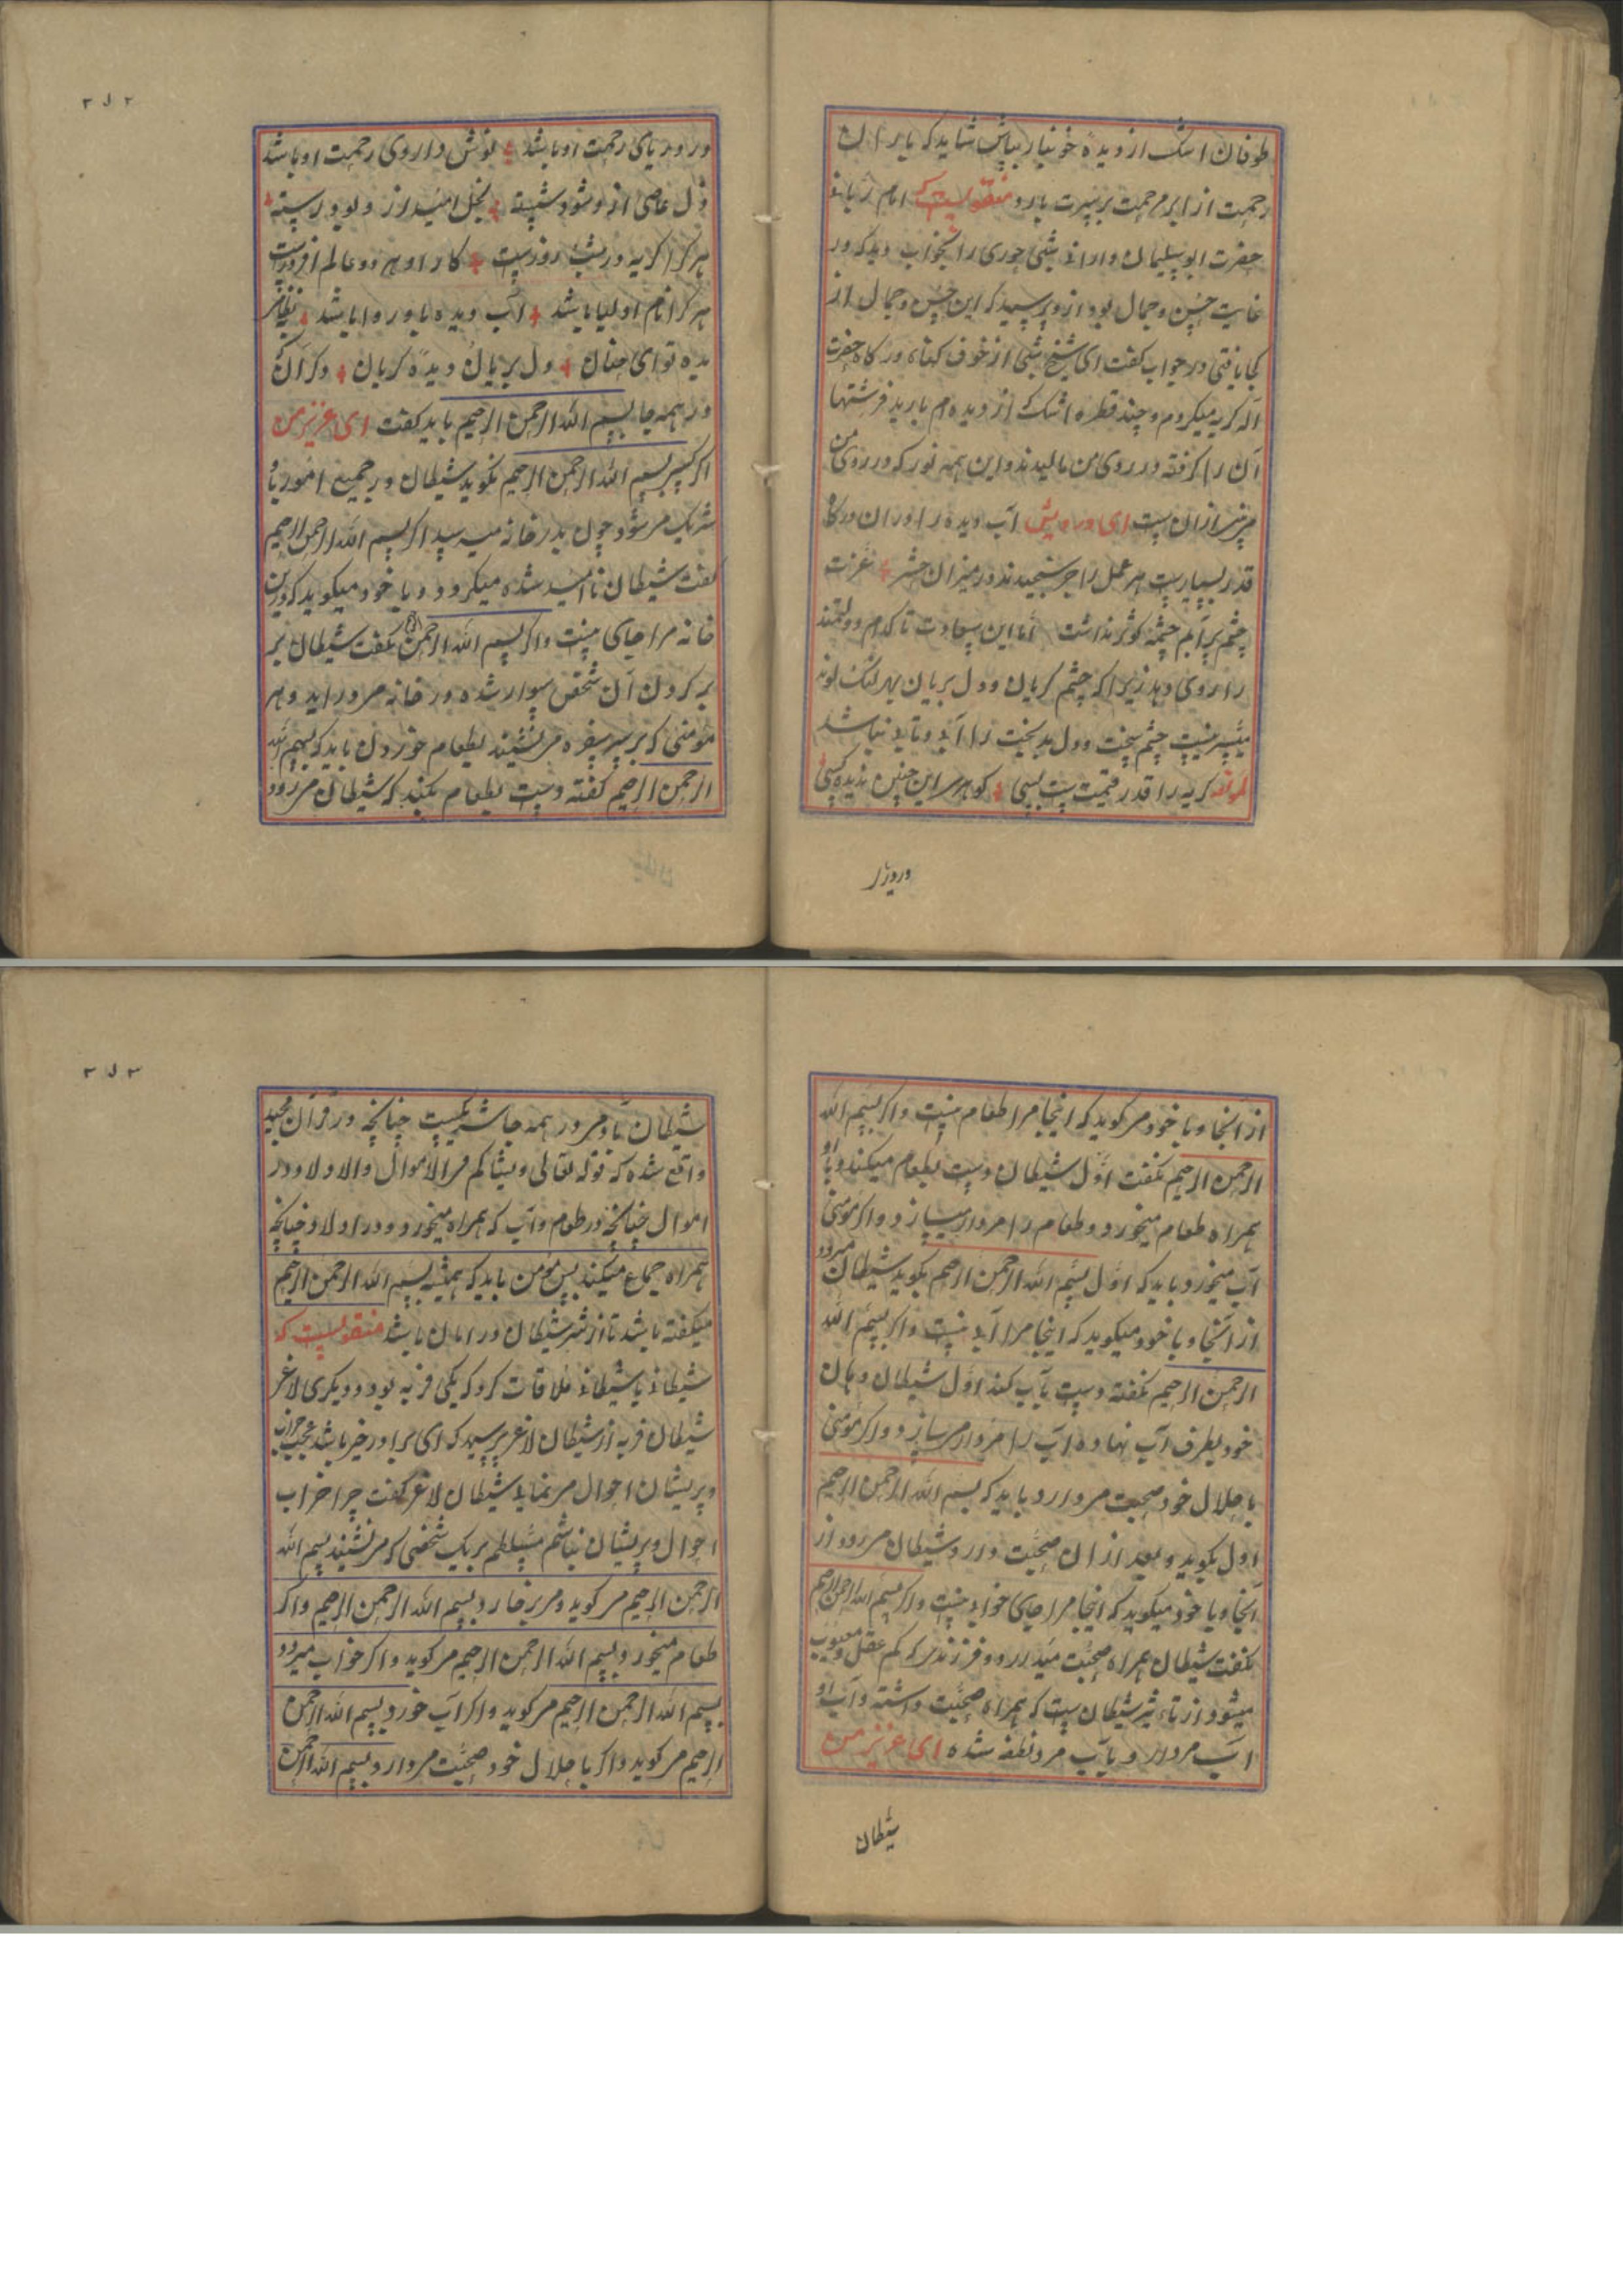 طوفان اشک از دیدهٔ خونبار بپاش شاید که باران
رحمت از ابر مرحمت بر سرت بارد منقولست که امام ربانی
حضرت ابو سلیمان دارانی شبی حوری را بخواب دید که در
غایت حسن و جمال بود از و پرسید که این حسن و جمال از
کجا یافتی در جواب گفت ای شیخ شبی از خوف گناه در گاه حضرت
اله گریه میکردم و چند قطره اشک از دیده ام بارید فرشتها
آن را گرفته در روی من مالیدند و این همه نور که در روی من
از ان است ای درویش آب دیده را در ان درگاه
قدر بسیارست هر عمل را جر سنجیدند در میزان حشر عزت
چشم پر آبم چشمهٔ کوثر نداشت اما این سعادت تا کدام دولتمند
را روی دهد زیرا که چشم گریان و دل بریان بهر
میسر نیست چشم سخت و دل بدبخت را آب و تاب نباشد
لمولفه گریه را قدر و قیمت ست بسی گوهر این چنین ندیده کسی
در و زار
۲۷۲
در دریای رحمت او باشد نوش داروی رحمت او باشد
دل عاصی ازو شود شسته نخل امید ازو بود رسته
هر کرا گریه در شب روزست کار او هر دو عالم افروزست
هر کرا نام اولیا باشد آب دیده باو روا باشد
بده توای حنان دل بریان و دیدهٔ گریان و کران
در همه جا بسم الله الرحمن الرحیم باید گفت ای عزیز من
اگر کسی بسم الله الرحمن الرحیم نگوید شیطان در جمیع امور با
شریک می شود چون بدر خانه میرسد اگر بسم الله الرحمن الرحیم
گفت شیطان نا امید شده میگرود و با خود میگوید که درین
خانه مرا جای نیست و اگر بسم الله الرحمن الرحیم نگفت شیطان بر
بر کردن آن شخص سوار شده در خانه می دراید و هر
مومنی که بر سر سفره می نشیند بطعام خوردن باید که بسم الله
الرحمن الرحیم گفته دست بطعام بکند که شیطان می رود
از انجا و با خود می گوید که اینجا مرا طعام نیست و اگر بسم الله
الرحمن الرحیم نگفت اول شیطان دست بطعام میکند و با او
همراه طعام میخورد و طعام را مردار میسازد و اگر مومنی
آب میخورد باید که اول بسم الله الرحمن الرحیم بگوید شیطان میرود
از انجا و با خود میگوید که اینجا مرا آب نیست و اگر بسم الله
الرحمن الرحیم نگفته دست بآب کند اول شیطان دهان
خود بطرف آب نهاده آب را مردار می سازد و اگر مومنی
با حلال خود صحبت می دارد باید که بسم الله الرحمن الرحیم
اول بگوید و بعد از ان صحبت دارد شیطان می رود از
آنجا و با خود میگوید که اینجا مرا جای خواب نیست و اگر بسم الله الرحمن الرحیم
نگفت شیطان همراه صحبت میدارد و فرزندی که کم عقل و معیوب
میشود از تاثیر شیطان ست که همراه صحبت داشته و آب او
آب مردار و بآب مرد نطفه شده ای عزیز من
شیطان
۲۷۳
شیطان بآدمی در همه جا شریکست چنانچه در قرآن مجید
واقع شده که قوله تعالی و شارکهم فی الاموال والاولاد در
اموال چنانچه در طعام و آب که همراه میخورد و در اولاد چنانچه
همراه جماع میکند پس مومن باید که همیشه بسم الله الرحمن الرحیم
میگفته باشد تا از شر شیطان در امان باشد منقولست که
شیطانی با شیطانی ملاقات کرد که یکی فربه بود و دیگری لاغر
شیطان فربه از شیطان لاغر پرسید که ای برادر خیر باشد عجب خراب
و پریشان احوال می نمایی شیطان لاغر گفت چرا خراب
احوال و پریشان نباشم مسلطم بر یک شخصی که می نشیند بسم الله
الرحمن الرحیم می گوید و می برخیزد بسم الله الرحمن الرحیم و اگر
طعام میخورد بسم الله الرحمن الرحیم می گوید و اگر خواب میرود
بسم الله الرحمن الرحیم می گوید و اگر آب خورد بسم الله الرحمن
الرحیم می گوید و اگر با حلال خود صحبت می دارد بسم الله الرحمن